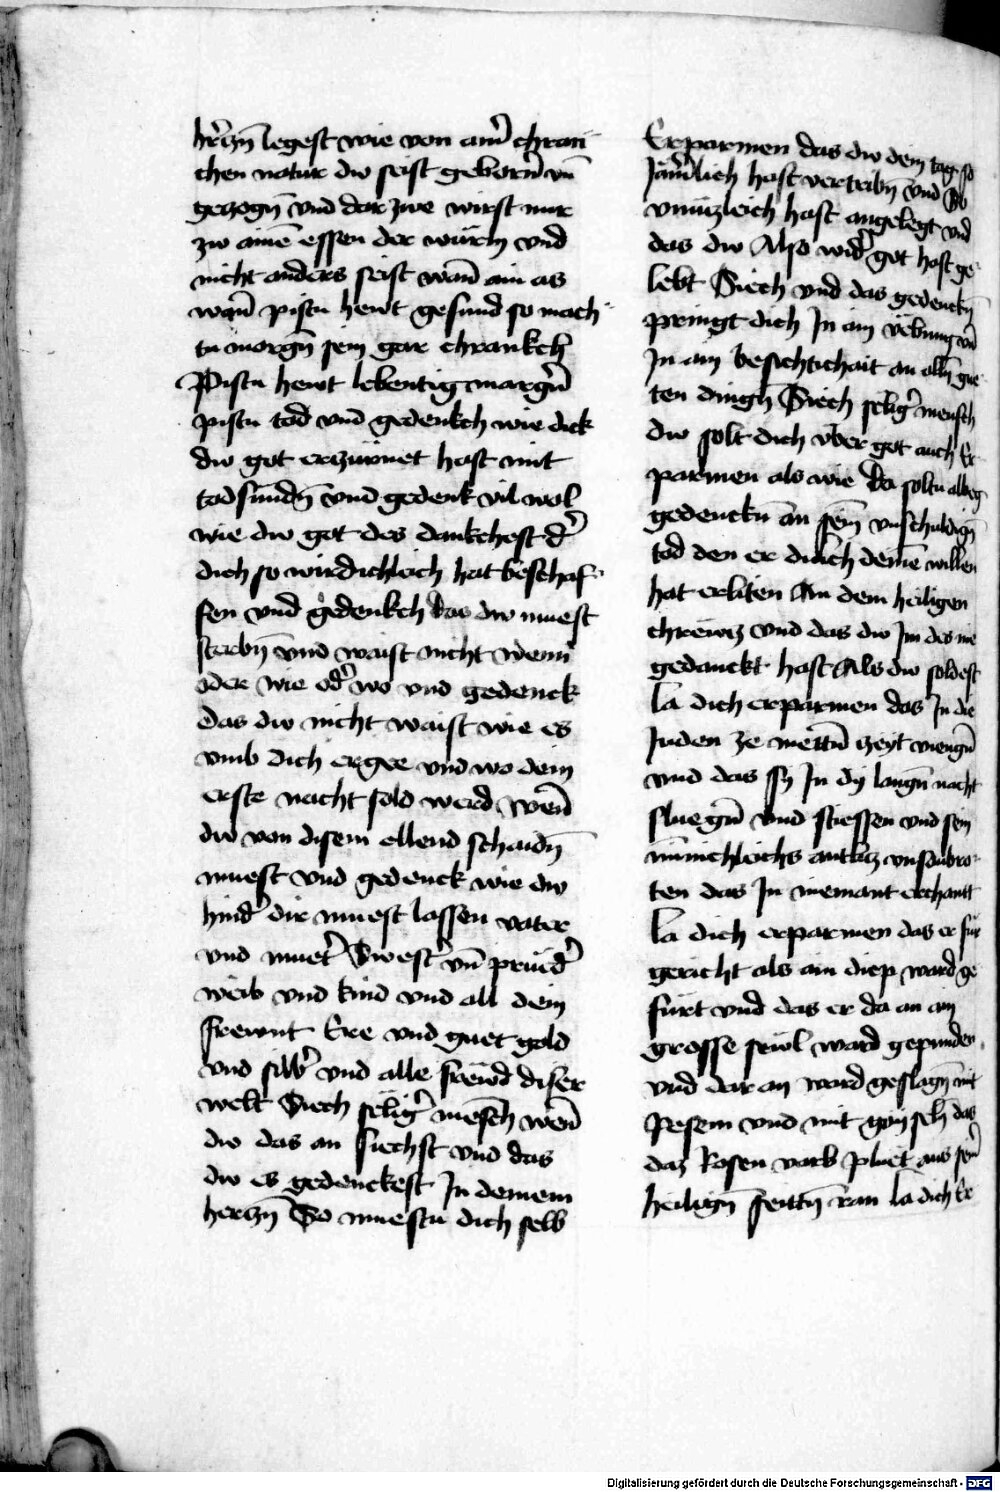 hr̄czn̄ legest wie von aīn̄ chran
chen natur diw seist geborn̄ vn̄
geczogn̄ vnd dar zwe wirst nur
zw ainē essen der würm vnd
nicht anders seist wan̄ ain as
wan̄ pistu hewt gesund so mach
tu morgn̄ sein gar chrankch
Pistu hewt lebentig margn̄
pistu tod vnd gedenkch wie dick
diw got erczürnet hast mit
tod sundn̄ vnd gedenk vil wol
wie diw got des dankchest d̄
dich so wirdichleich hat beschaf
fen vnd gedenkch das diw muest
sterbn̄ vnd waist nicht wenn
oder wie od̄ wo vnd gedenck
das diw nicht waist wie es
vmb dich ergee vnd wo dein
erste nacht sold werd wen̄
diw von disem ellend schaidn̄
muest vnd gedenck wie diw
hind̄ dir muest lassen vater
vnd muet̄ Swest̄ vn̄ prüed̄
weib vnd kind vnd all dein
frewnt Ere vnd guet gold
vnd silb̄ vnd alle frewd diser
welt Siech seliḡ mēsch wen̄
diw das an siechst vnd das
diw es gedenckest In deinem
herczn̄ So muestu dich selb
Erparmen das diw dein tag so
Jām̄lich hast vertribn̄ vnd so
vnnüczleich hast angelegt vnd
das diw Also wid̄ got hast ge
lebt Siech vnd das gedenckn̄
pringt dich In ain vebung vn̄
In ain besichtichait an alln̄ gue
ten dingn̄ Siech seliḡ mensch
diw solt dich vber got auch Er
parmen als wie da soltu albeg
gedenckn̄ an sein̄ vnschuldign̄
tod den er durch deinē willen
hat erliten An dem heiligen
chrewcz vnd das diw Im des nie
gedanckt hast Als diw soldest
La dich erparmen das In die
Juden ze mettn̄ czeyt viengn̄
vnd das sy In dy langn̄ nacht
sluegn̄ vnd stiessen vnd sein
mīnichleichs antlicz
ten das In niemant erchantt
La dich erparmen das er für
gericht als ain diep ward ge
fürt vnd das er da an ain
grosse sewl ward gepunden
vnd dar an ward geslagn̄ mit
Pesem vnd mit das
daz Rosen varb pluet aus sein̄
heilign̄ seittn̄ ran La dich Er
Digitalisierung gefördert durch die Deutsche Forschungsgemeinschaft - DFG